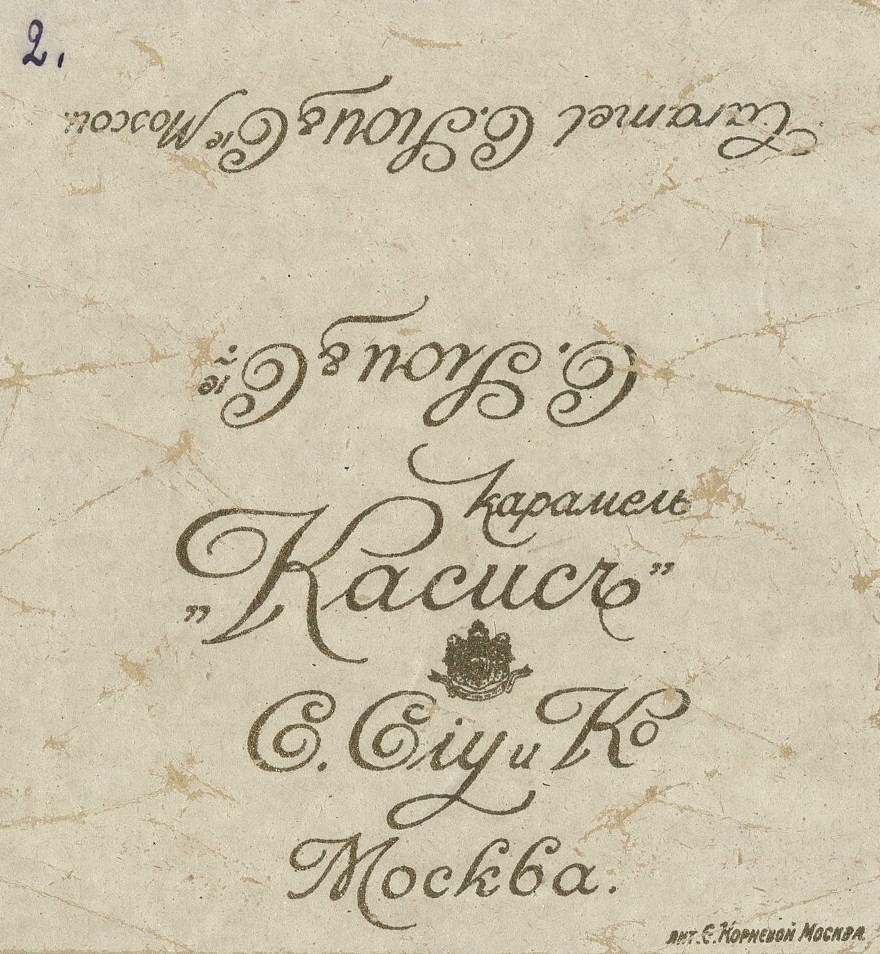 2.
Caramel C. Siou & Cie Moscou.
C. Siou & Cie
карамель
„Касисъ”
С. Сіу и Ко
Москва.
лит. С. Корневой Москва.